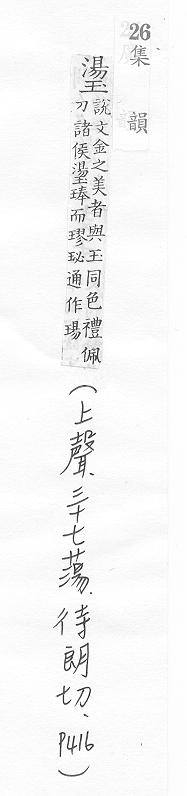 26
集韻
璗說文金之美者與玉同色禮佩
刀諸侯璗琫而璆珌通作瑒
(上聲、三十七蕩、待朗切、P416)